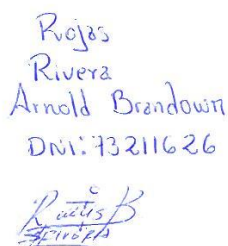 Rojas
Rivera
Arnold Brandown
DNI: 73211626